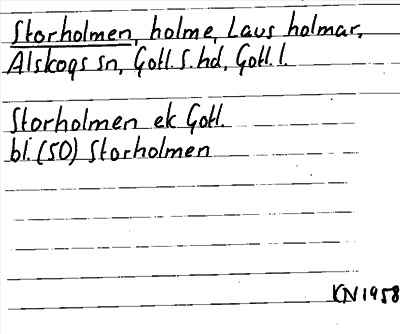 Storholmen, holme, Laus holmar,
Alskogs sn, Gotl. S. hd, Gotl. l.
Storholmen ek Gotl.
bl. (50) Storholmen
KN 1958